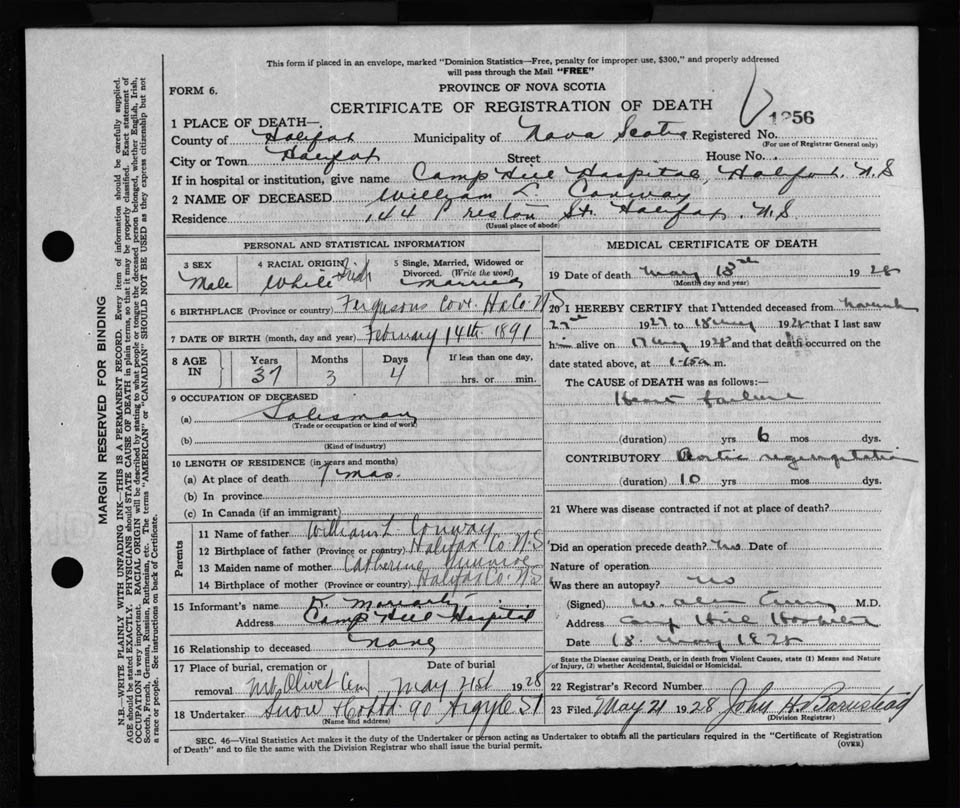 This form if placed in an envelope, marked "Dominion Statistics—Free, penalty for improper use, $300," and properly addressed
will pass through the Mail "FREE"
FORM 6.
PROVINCE OF NOVA SCOTIA
CERTIFICATE OF REGISTRATION OF DEATH
1 PLACE OF DEATH—
County of Halifax Municipality of Nova Scotia Registered No. 1256
(For use of Registrar General only)
City or Town Halifax Street House No.
If in hospital or institution, give name Camp Hill Hospital, Halifax. N.S
2 NAME OF DECEASED William L. Conway
Residence 144 Preston St. Halifax. N.S
(Usual place of abode)
PERSONAL AND STATISTICAL INFORMATION
3 SEX 4 RACIAL ORIGIN 5 Single, Married, Widowed or
Divorced. (Write the word)
Male White Irish Married
6 BIRTHPLACE (Province or country) Fergusons Cove. Hx Co. N.S
7 DATE OF BIRTH (month, day and year) February 14th 1891
8 AGE IN Years Months Days If less than one day,
37 3 4 hrs. or min.
9 OCCUPATION OF DECEASED
(a) Salesman
(Trade or occupation or kind of work)
(b)
(Kind of industry)
10 LENGTH OF RESIDENCE (in years and months)
(a) At place of death mos.
(b) In province
(c) In Canada (if an immigrant)
Parents
11 Name of father William L Conway
12 Birthplace of father (Province or country) Halifax Co N.S
13 Maiden name of mother Catherine Munroe
14 Birthplace of mother (Province or country) Halifax Co. N.S
15 Informant's name K. Moriarty
Address Camp Hill Hospital
16 Relationship to deceased None
17 Place of burial, cremation or Date of burial
removal Mt. Olivet Cem May 21st 1928
18 Undertaker Snow & Co Ltd. 90 Argyle St
(Name and address)
MEDICAL CERTIFICATE OF DEATH
19 Date of death May 18th 1928
(Month day and year)
20 I HEREBY CERTIFY that I attended deceased from
1927 to 18 May 1928 that I last saw
him alive on 17 May 1928 and that death occurred on the
date stated above, at 1-15a m.
The CAUSE of DEATH was as follows:—
Heart failure
(duration) yrs 6 mos dys.
CONTRIBUTORY Aortic regurgitation
(duration) 10 yrs mos dys.
21 Where was disease contracted if not at place of death?
Did an operation precede death? No Date of
Nature of operation
Was there an autopsy? No
(Signed) W. Alan M.D.
Address Camp Hill Hospital
Date 18. May 1928
State the Disease causing Death, or in death from Violent Causes, state (1) Means and Nature
of Injury, (2) whether Accidental, Suicidal or Homicidal.
22 Registrar's Record Number
23 Filed May 21 1928 John H Barnstead
(Division Registrar)
SEC. 46—Vital Statistics Act makes it the duty of the Undertaker or person acting as Undertaker to obtain all the particulars required in the "Certificate of Registration
of Death" and to file the same with the Division Registrar who shall issue the burial permit.
(OVER)
MARGIN RESERVED FOR BINDING
N.B.—WRITE PLAINLY WITH UNFADING INK—THIS IS A PERMANENT RECORD. Every item of information should be carefully supplied.
AGE should be stated EXACTLY. PHYSICIANS should STATE CAUSE OF DEATH in plain terms, so that it may be properly classified. Exact statement of
OCCUPATION is very important. RACIAL ORIGIN will be described by stating to what people or tongue the deceased person belonged, whether English, Irish,
Scotch, French, German, Russian, Ruthenian, etc. The terms "AMERICAN" or "CANADIAN" SHOULD NOT BE USED as they express citizenship but not
a race or people. See instructions on back of Certificate.